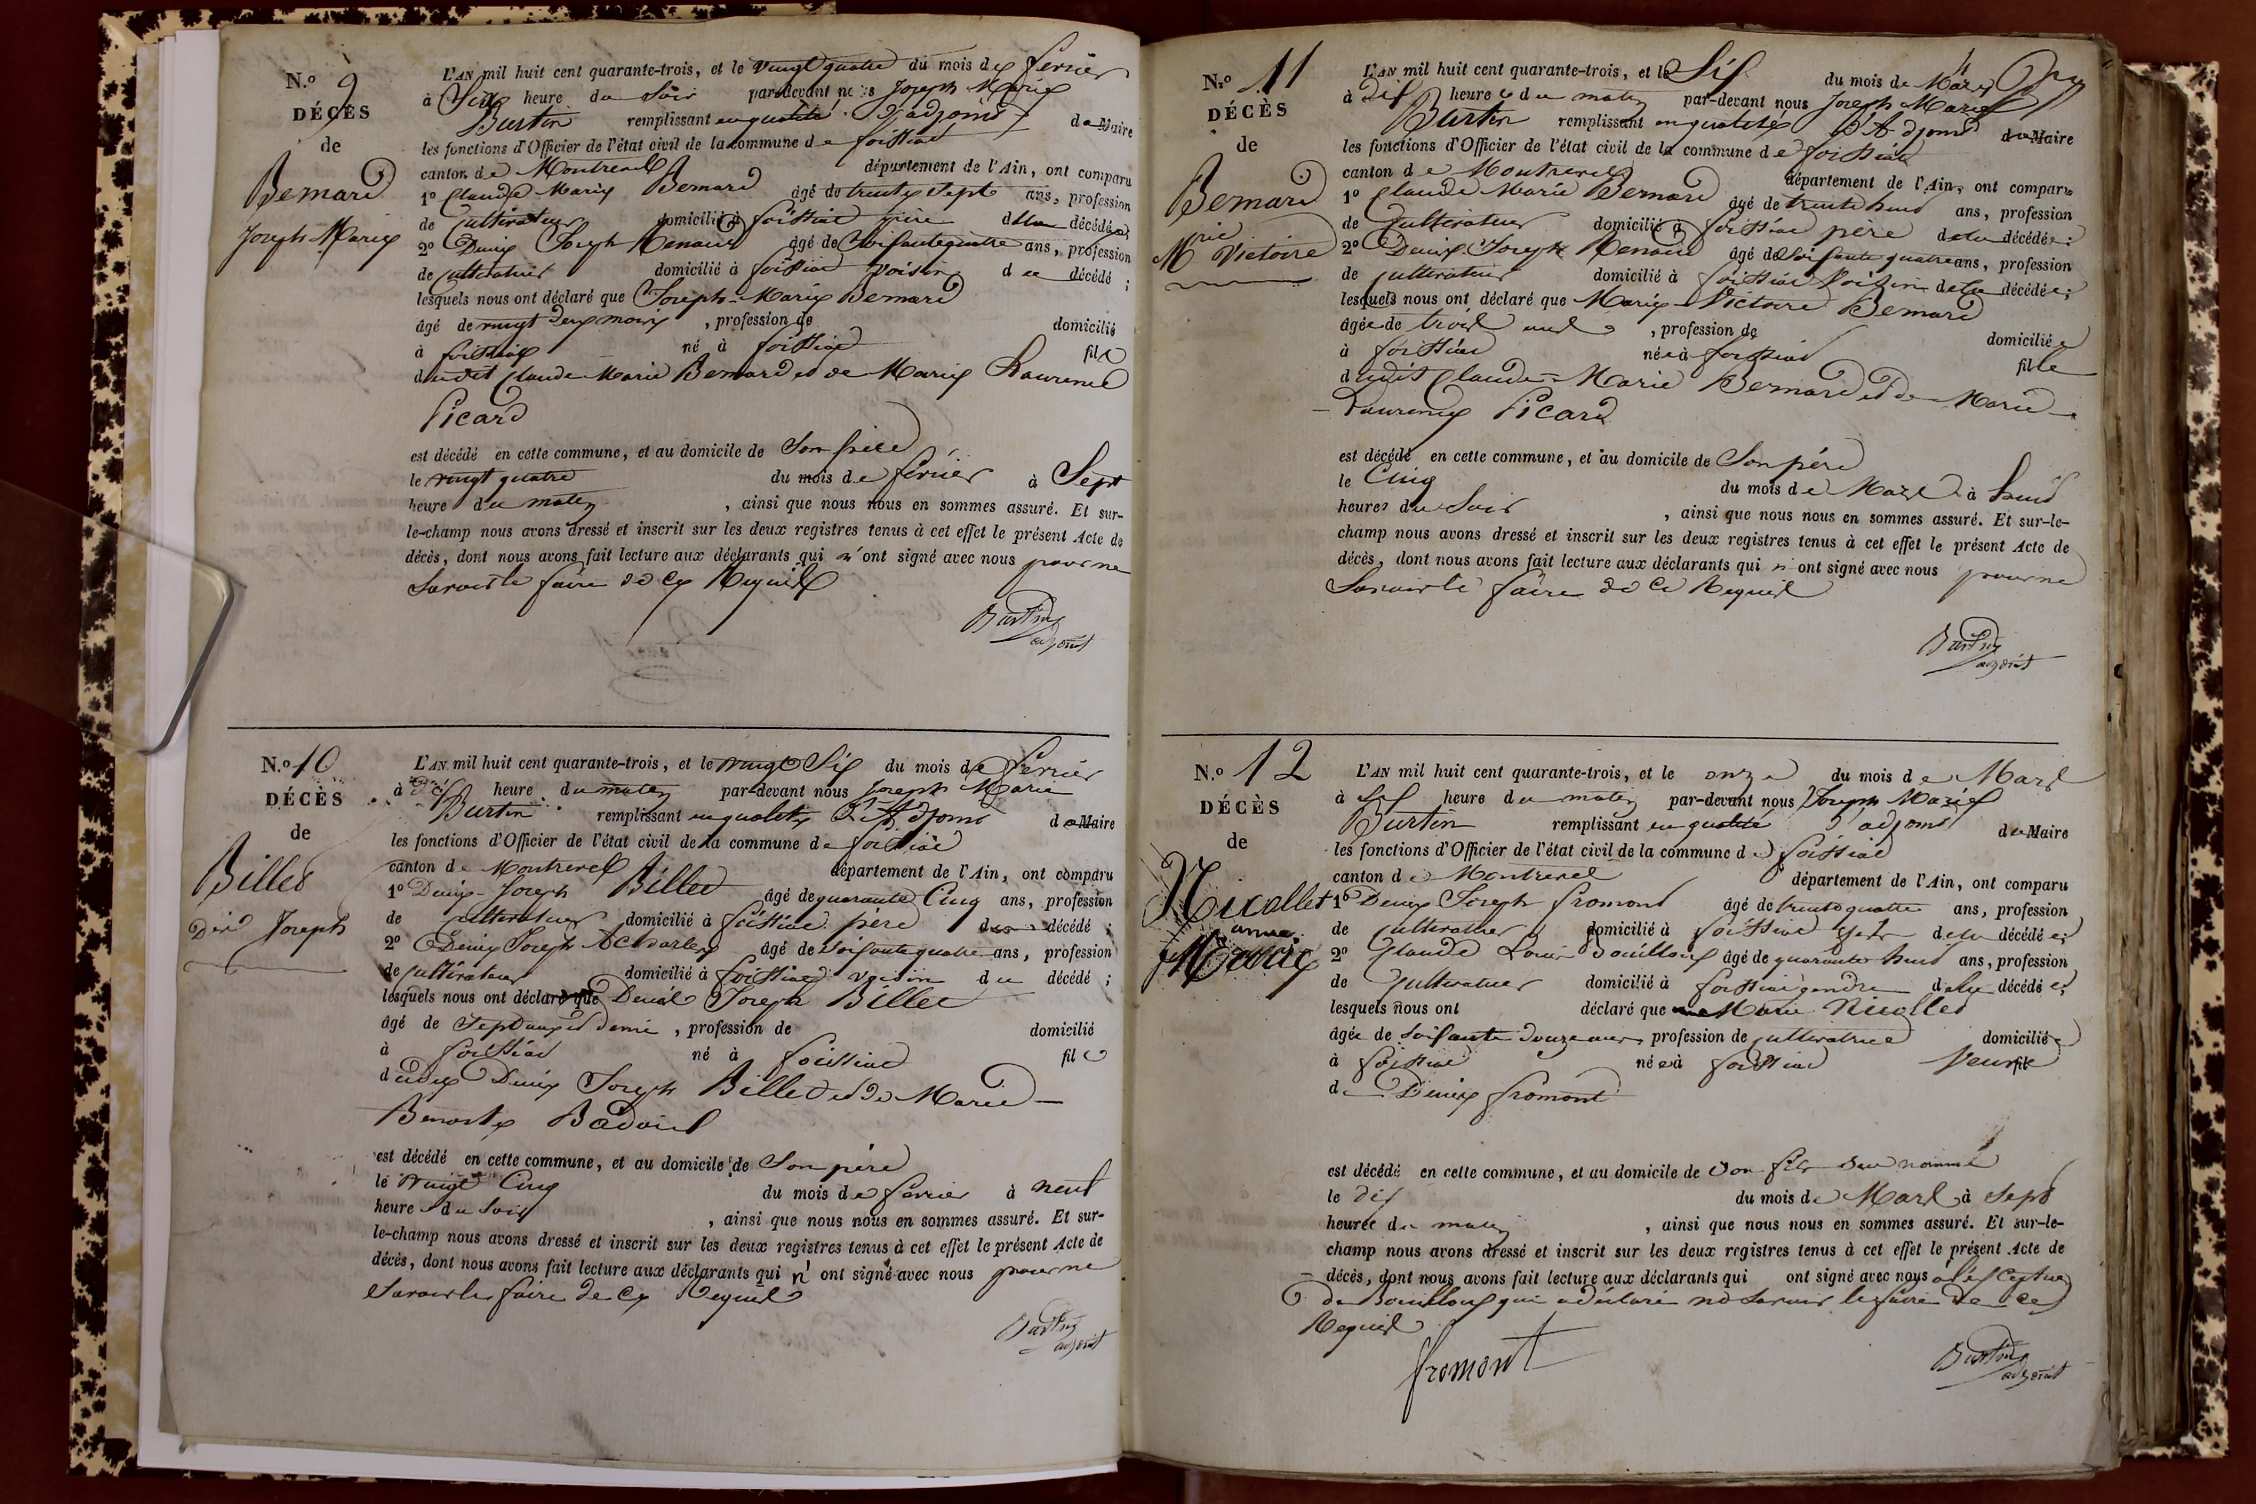 N.° 9
DÉCÈS
de
Bernard
Joseph Marie
L'AN mil huit cent quarante-trois, et le vingt quatre du mois de fevrier
à Six heure du Soir par-devant nous Joseph Marie
Burtin remplissant en qualité d'adjoint du Maire
les fonctions d'Officier de l'état civil de la commune de foissiat
canton de Montrevel département de l'Ain, ont comparu
1° Claude Marie Bernard âgé de trente sept ans, profession
de Cultivateur domicilié à foissiat père du décédé ;
2° Denis Joseph Renaud âgé de soixante quatre ans, profession
de Cultivateur domicilié à foissiat voisin du décédé ;
lesquels nous ont déclaré que Joseph-Marie Bernard
âgé de vingt deux mois, profession de domicilié
à foissiat né à foissiat fils
dudit Claude Marie Bernard et de Marie Laurence
Picard
est décédé en cette commune, et au domicile de Son père
le vingt quatre du mois de fevrier à Sept
heure du matin, ainsi que nous nous en sommes assuré. Et sur-
le-champ nous avons dressé et inscrit sur les deux registres tenus à cet effet le présent Acte de
décès, dont nous avons fait lecture aux déclarants qui n'ont signé avec nous pour ne
Savoir le faire de ce Requis
Burtin
adjoint
N.° 10
DÉCÈS
de
Billet
Denis Joseph
L'AN mil huit cent quarante-trois, et le vingt Six du mois de fevrier
à heure du matin par-devant nous Joseph Marie
Burtin remplissant en qualité d'Adjoint du Maire
les fonctions d'Officier de l'état civil de la commune de foissiat
canton de Montrevel département de l'Ain, ont comparu
1° Denis-Joseph Billet âgé de quarante Cinq ans, profession
de Cultivateur domicilié à foissiat père du décédé ;
2° Denis Joseph âgé de Soixante quatre ans, profession
de Cultivateur domicilié à foissiat voisin du décédé ;
lesquels nous ont déclaré que Denis Joseph Billet
âgé de Sept ans et demi, profession de domicilié
à foissiat né à foissiat fils
dudit Denis Joseph Billet et de Marie
Benoite Badoux
est décédé en cette commune, et au domicile de Son père
le vingt Cinq du mois de fevrier à neuf
heure du Soir, ainsi que nous nous en sommes assuré. Et sur-
le-champ nous avons dressé et inscrit sur les deux registres tenus à cet effet le présent Acte de
décès, dont nous avons fait lecture aux déclarants qui n'ont signé avec nous pour ne
Savoir le faire de ce Requis
Burtin
adjoint
N.° 11
DÉCÈS
de
Bernard
Mrie Victoire
L'AN mil huit cent quarante-trois, et le Six du mois de Mars
à dix heure du matin par-devant nous Joseph Marie
Burtin remplissant en qualité d'Adjoint du Maire
les fonctions d'Officier de l'état civil de la commune de foissiat
canton de Montrevel département de l'Ain, ont comparu
1° Claude Marie Bernard âgé de trente huit ans, profession
de Cultivateur domicilié à foissiat père de la décédée ;
2° Denis Joseph Renaud âgé de Soixante quatre ans, profession
de Cultivateur domicilié à foissiat Voisin de la décédée ;
lesquels nous ont déclaré que Marie Victoire Bernard
âgée de trois ans, profession de domiciliée
à foissiat née à foissiat fille
dudit Claude-Marie Bernard et de Marie
Laurence Picard
est décédé en cette commune, et au domicile de Son père
le Cinq du mois de Mars à huit
heures du Soir, ainsi que nous nous en sommes assuré. Et sur-le-
champ nous avons dressé et inscrit sur les deux registres tenus à cet effet le présent Acte de
décès, dont nous avons fait lecture aux déclarants qui n'ont signé avec nous pour ne
Savoir le faire de ce Requis
Burtin
adjoint
N.° 12
DÉCÈS
de
Nicollet
Marie
L'AN mil huit cent quarante-trois, et le onze du mois de Mars
à heure du matin par-devant nous Joseph Marie
Burtin remplissant en qualité d'adjoint du Maire
les fonctions d'Officier de l'état civil de la commune de foissiat
canton de Montrevel département de l'Ain, ont comparu
1° Denis Joseph fromont âgé de trente quatre ans, profession
de Cultivateur domicilié à foissiat fils de la décédée ;
2° Claude Louis Bouilloux âgé de quarante huit ans, profession
de Cultivateur domicilié à foissiat gendre de la décédée ;
lesquels nous ont déclaré que Marie Nicollet
âgée de soixante douze ans, profession de cultivatrice domiciliée
à foissiat née à foissiat Veuve
de Denis fromont
est décédé en cette commune, et au domicile de Son fils nommé
le dix du mois de Mars à Sept
heures du matin, ainsi que nous nous en sommes assuré. Et sur-le-
champ nous avons dressé et inscrit sur les deux registres tenus à cet effet le présent Acte de
décès, dont nous avons fait lecture aux déclarants qui ont signé avec nous
de Bouilloux qui a déclaré ne Savoir le faire de ce
Requis
fromont
Burtin
adjoint